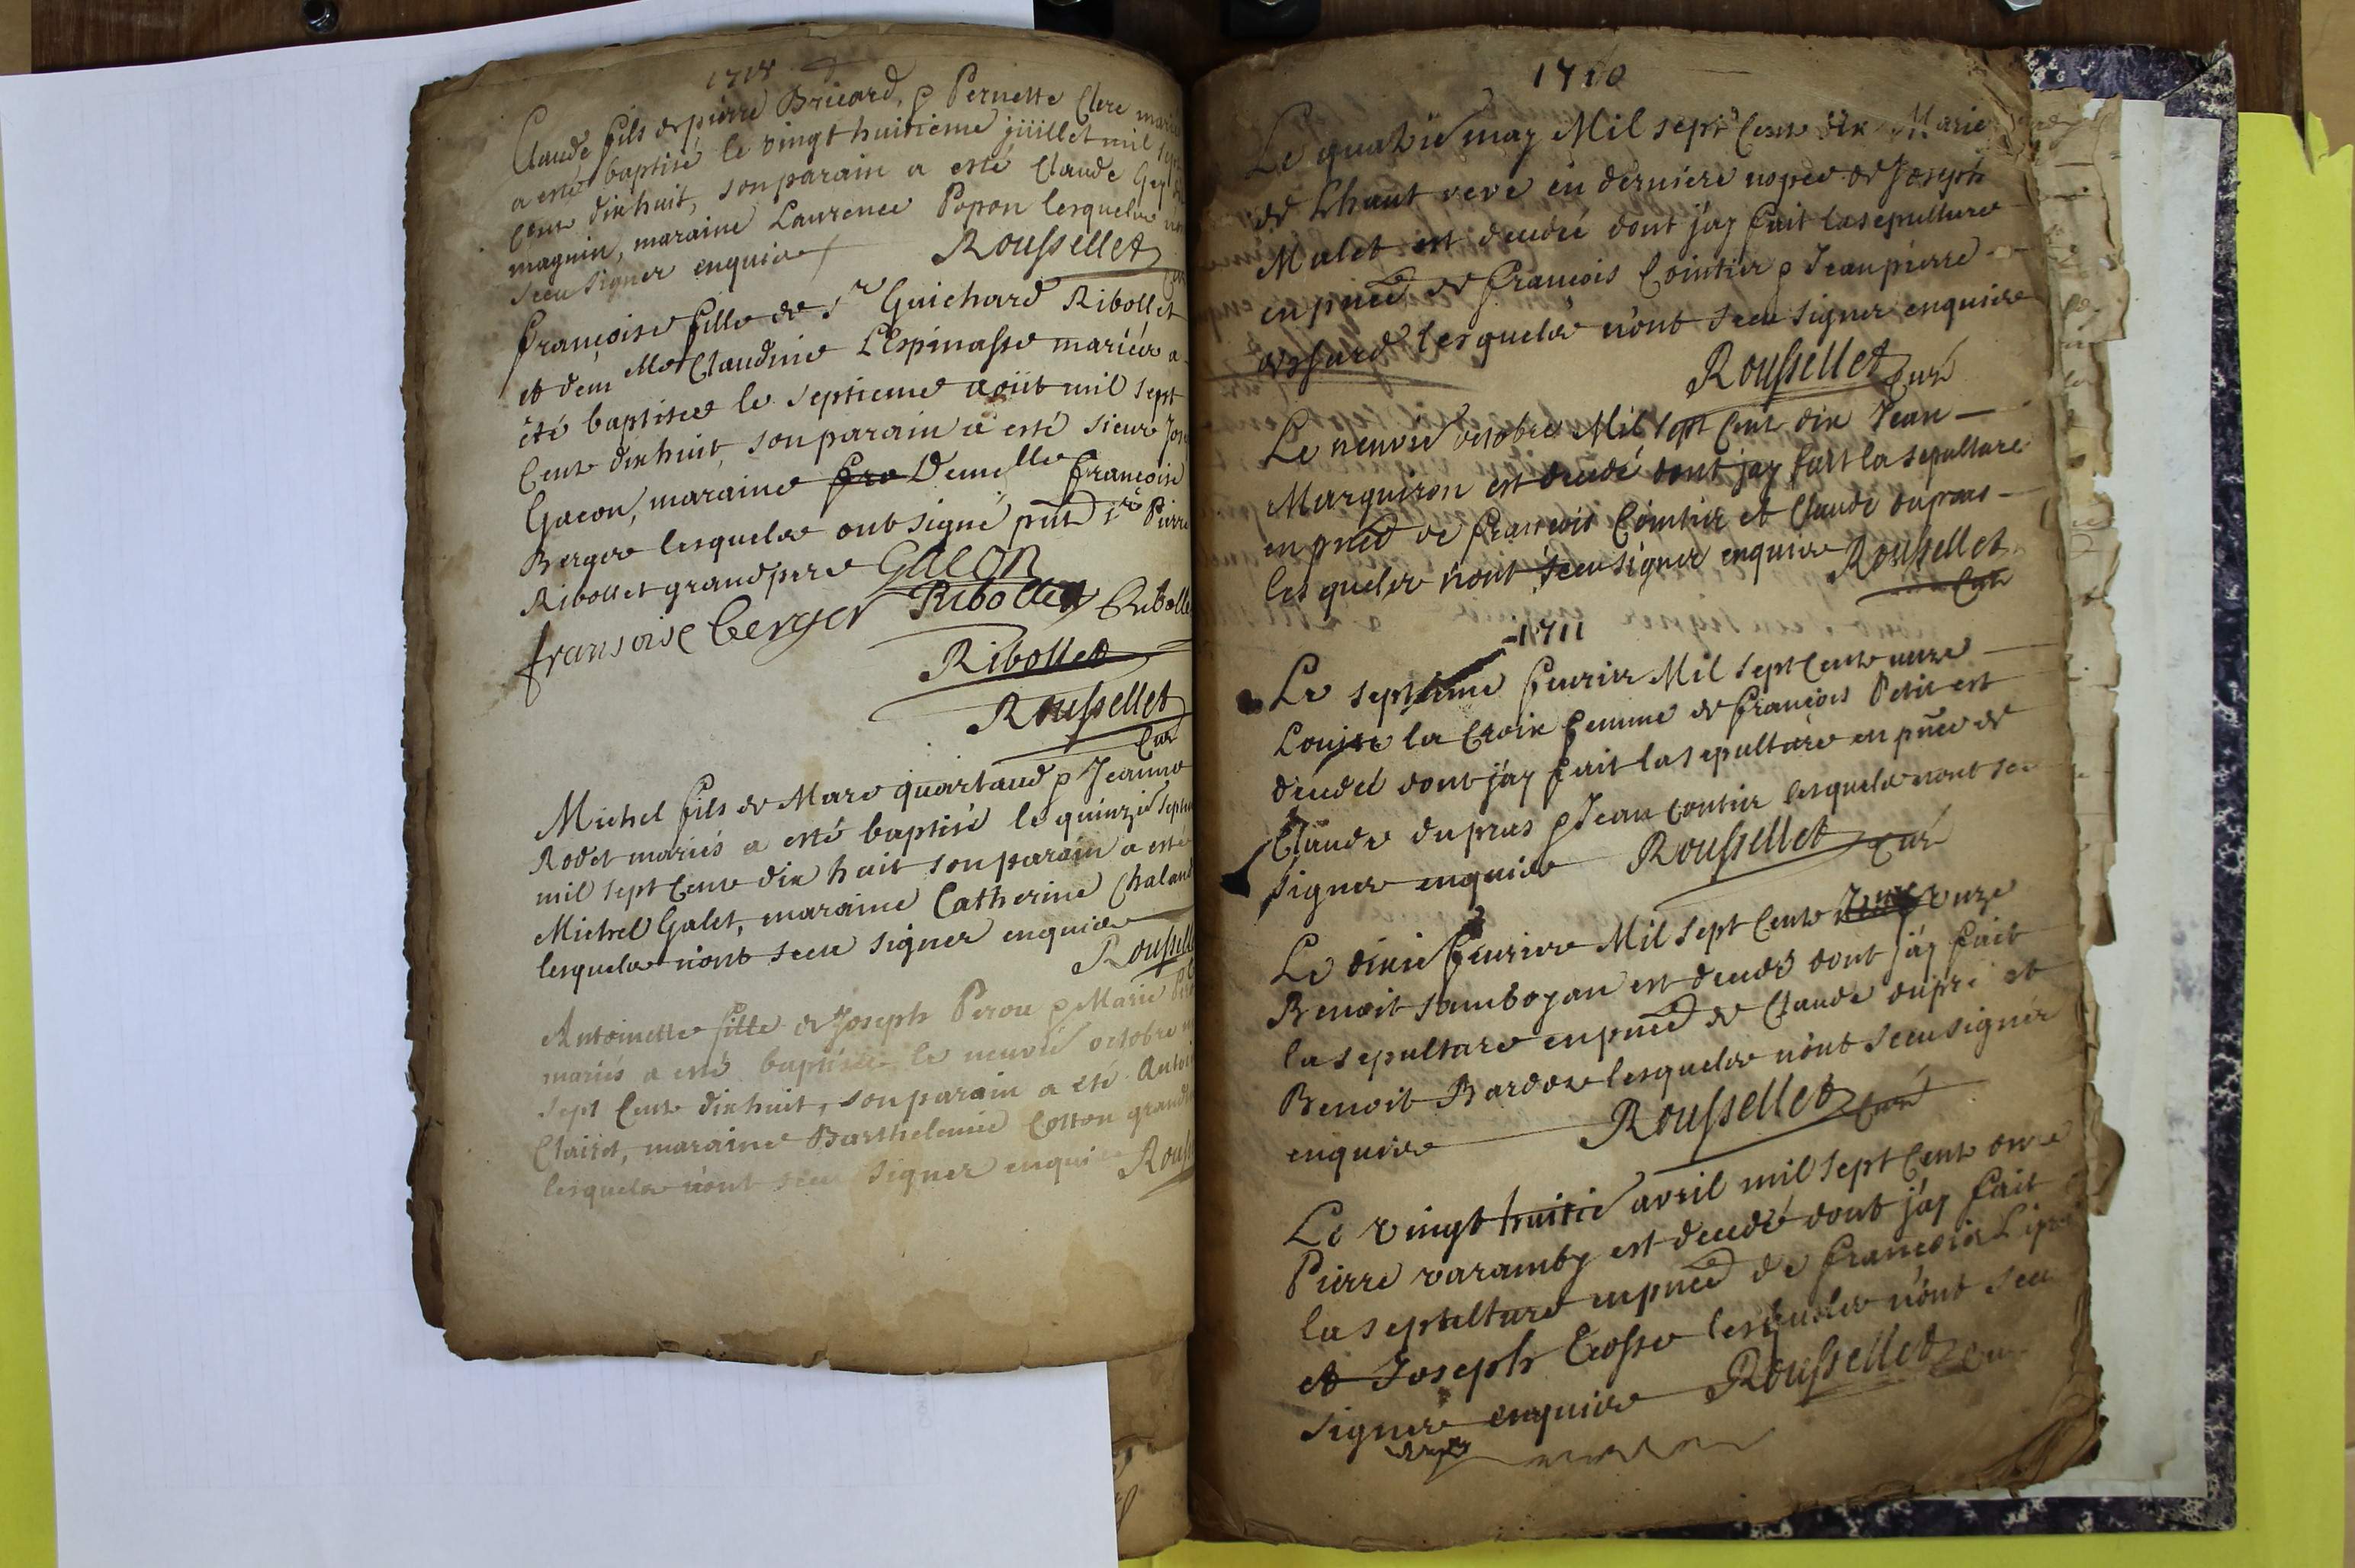 1718
Claude fils de pierre Bricard, & Pernette Clere mariés
a esté baptisé le vingt huitieme juillet mil sept
Cents dix huit, son parain a esté Claude
magnin, maraine Laurence Popon lesquels
sceu signer enquis
Roussellet
françoise fille de Sr Guichard Ribollet
et demlle Claudine L'Espinasse mariés a
été baptisée le septieme août mil sept
Cents dix huit son parain a esté sieur
Gacon, maraine fra Demlle françoise
Berger lesquels ont signé pnt Sr Pierre
Ribollet grandpere Gacon
fransoise berger Ribollet Ribolle
Ribollet
Roussellet
Cur
Michel fils de Marc quartaud & Jeanne
Rodet mariés a esté baptisé le quinzie
mil sept Cents dix huit son parain a esté
Michel Galet, maraine Catherine Chaland
lesquels n'ont sceu signer enquis
Roussell
Antoinette fille de Joseph Perou & Marie
mariés a esté baptisée le neuvie octobre
sept Cents dix huit, son parain a été
Clairet, maraine Barthelemie Cotton
lesquels n'ont sceu signer enquis Rouss
1710
Le quatrie may Mil sept Cents dix Marie
de Lhaut veve en derniere nopce de Joseph
Malet est decedée dont j'ay fait la sepulture
en pnce de françois Cointier & Jean pierre
dessard lesquels n'ont sceu signer enquis
Roussellet Curé
Le neuvie octobre Mil sept Cents dix Jean
Marguiron est decedé dont j'ay fait la sepulture
en pnce de françois Cointier et Claude dupras
lesquels n'ont sceu signer enquis Roussellet
Curé
1711
Le septieme feuvrier Mil sept Cents unze
Louise la Croix femme de françois Petit est
decedée dont j'ay fait la sepulture en pnce de
Claude dupras & Jean Contier lesquels n'ont sceu
signer enquis Roussellet Curé
Le dixie feuvrier Mil sept Cents unze
Benoit Jamboyan est decedé dont j'ay fait
la sepulture en pnce de Claude dupré et
Benoit Bardoz lesquels n'ont sceu signer
enquis Roussellet Curé
Le vingt huitie avril mil sept Cents onze
Pierre varamby est decedé dont j'ay fait
la sepulture en pnce de françois
et Joseph Crosse lesquels n'ont sceu
signer enquis Roussellet